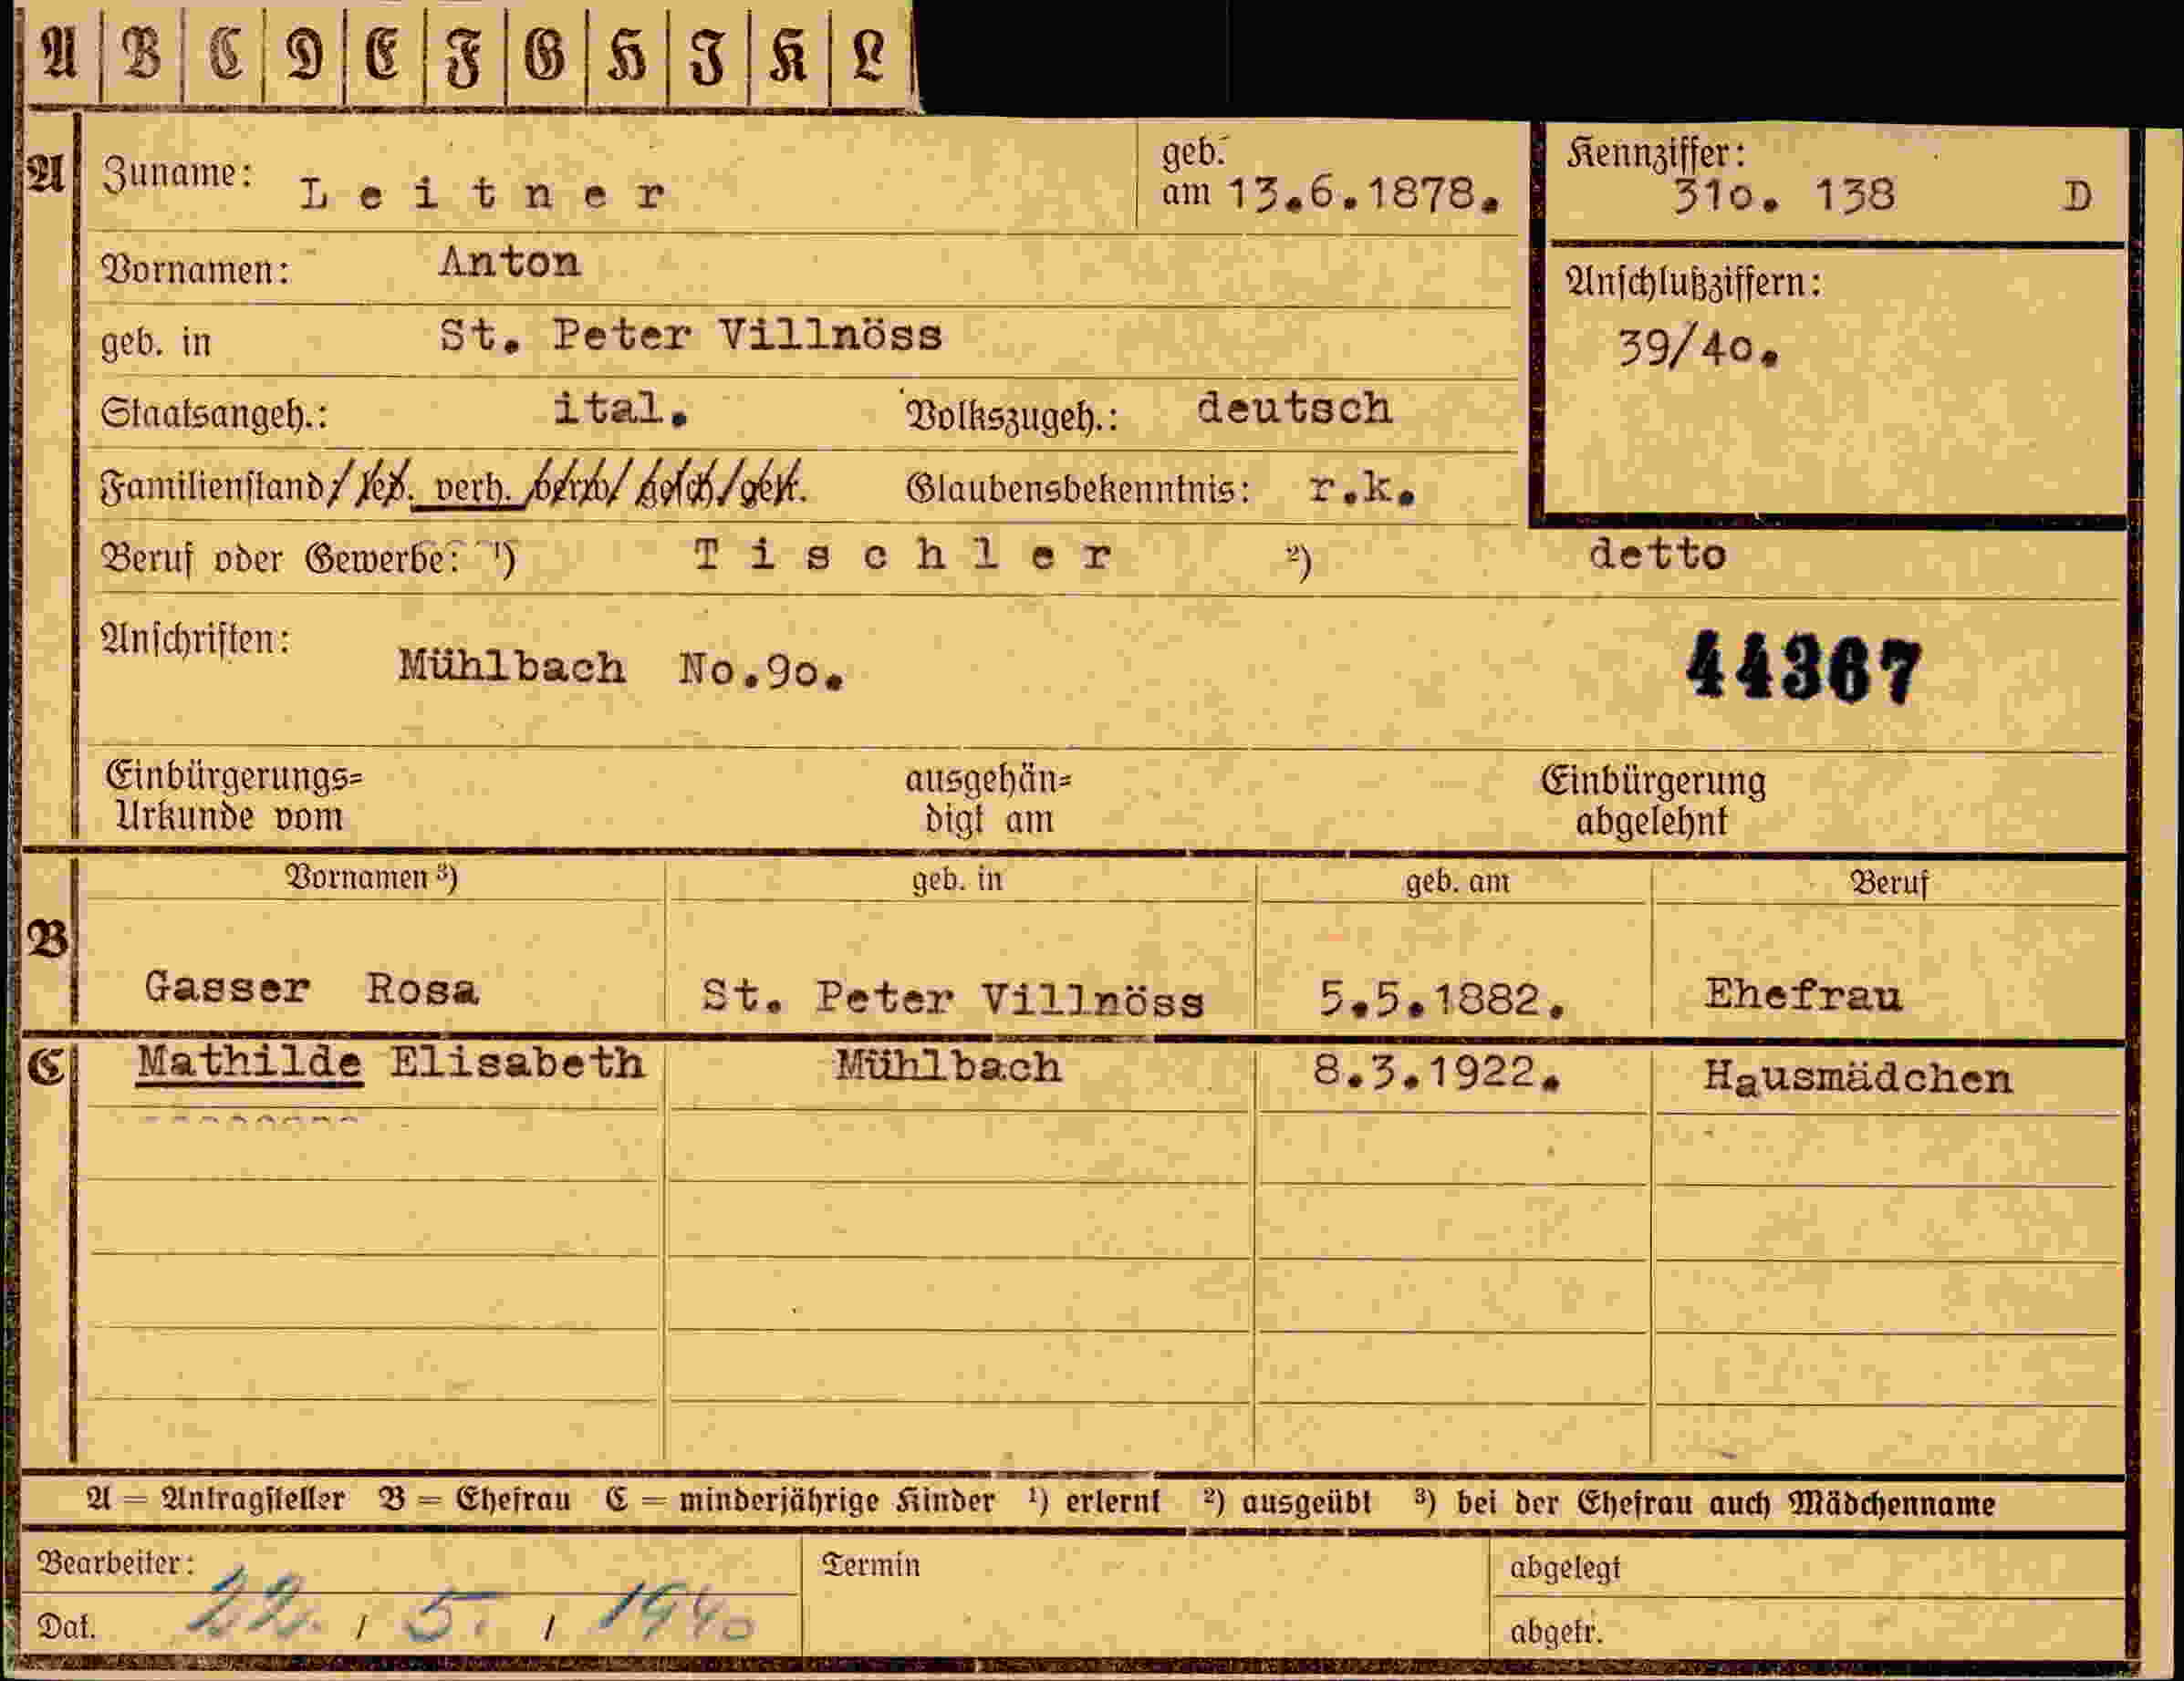 A B C D E F G H I K L
A Zuname: Leitner geb. am 13.6.1878. Kennziffer: 310. 138 D
Vornamen: Anton Anschlußziffern:
geb. in St. Peter Villnöss 39/40.
Staatsangeh.: ital. Volkszugeh.: deutsch
Familienstand: led. verh. verw. gesch. getr. Glaubensbekenntnis: r.k.
Beruf oder Gewerbe: ¹) Tischler ²) detto
Anschriften: Mühlbach No.90. 44367
Einbürgerungs= ausgehän= Einbürgerung
Urkunde vom digt am abgelehnt
Vornamen ³) geb. in geb. am Beruf
B
Gasser Rosa St. Peter Villnöss 5.5.1882. Ehefrau
C Mathilde Elisabeth Mühlbach 8.3.1922. Hausmädchen
A = Antragsteller B = Ehefrau C = minderjährige Kinder ¹) erlernt ²) ausgeübt ³) bei der Ehefrau auch Mädchenname
Bearbeiter: Termin abgelegt
Dat. 22. / 5. / 1940 abgetr.